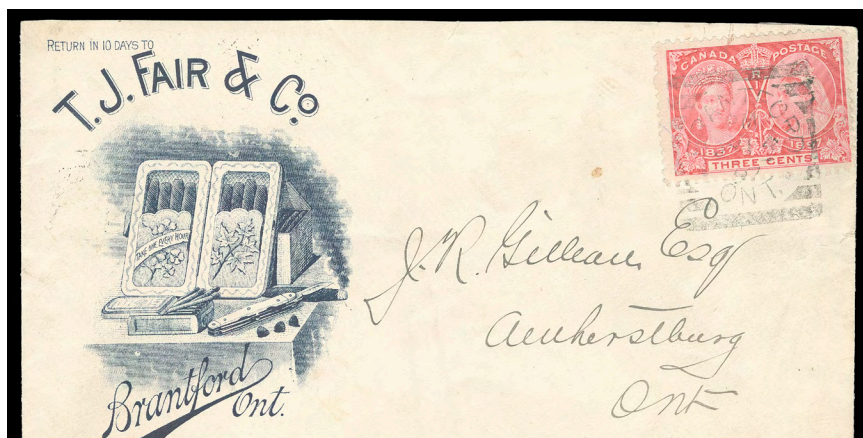 RETURN IN 10 DAYS TO
T. J. FAIR & Co
TAKE ONE EVERY HOUR
Brantford
Ont.
CANADA POSTAGE
VR
1837 18
THREE CENTS
ONT.
J. R. Gilleau Esq
Amherstburg
Ont